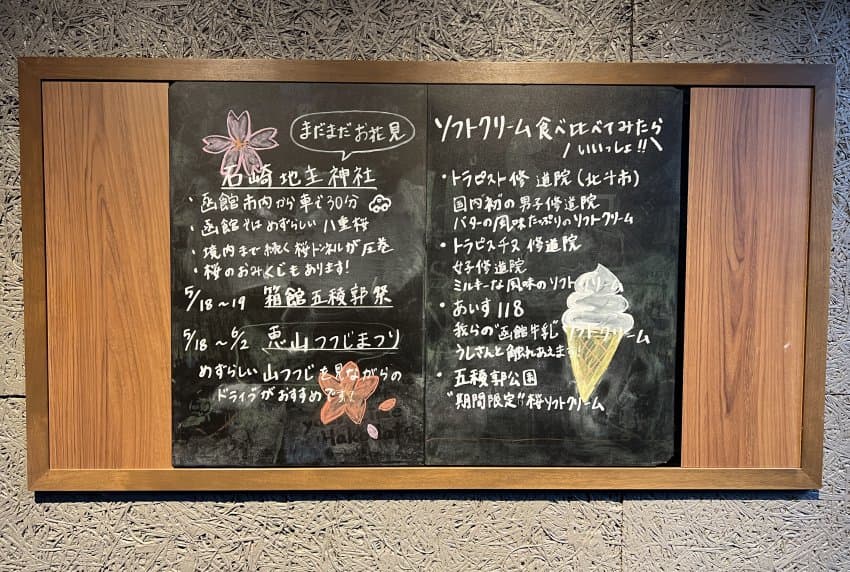 まだまだお花見
石崎地主神社
・函館市内から車で30分
・函館ではめずらしい八重桜
・境内まで続く桜トンネルが圧巻
・桜のおみくじもあります!
5/18～19 箱館五稜郭祭
5/18～6/2 恵山つつじまつり
めずらしい山つつじを見ながらの
ドライブがおすすめです!
ソフトクリーム食べ比べてみたら
いいっしょ!!
・トラピスト修道院(北斗市)
国内初の男子修道院
バターの風味たっぷりのソフトクリーム
・トラピスチヌ修道院
女子修道院
ミルキーな風味のソフトクリーム
・あいす118
我らの"函館牛乳"ソフトクリーム
うしさんと触れあえます!
・五稜郭公園
"期間限定"桜ソフトクリーム